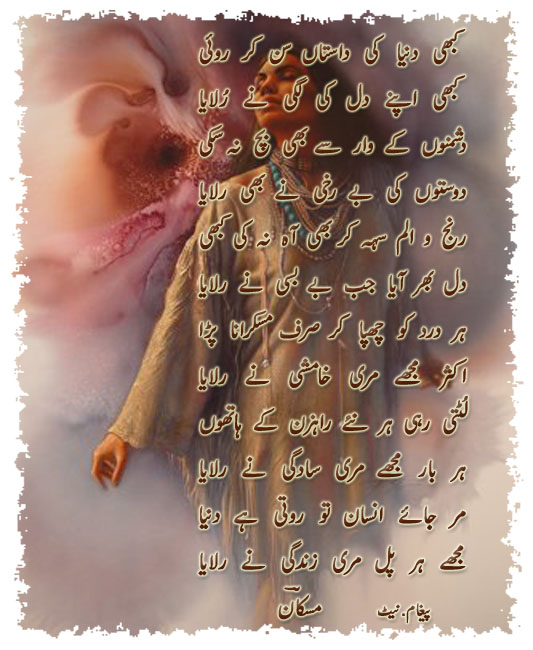 کبھی دنیا کی داستاں سن کر روئی
کبھی اپنے دل کی لگی نے رُلایا
دشمنوں کے وار سے بھی بچ نہ سکی
دوستوں کی بے رخی نے بھی رلایا
رنج و الم سہہ کر بھی آہ نہ کی کبھی
دل بھر آیا جب بے بسی نے رلایا
ہر درد کو چھپا کر صرف مسکرانا پڑا
اکثر مجھے مری خامشی نے رلایا
لُٹتی رہی ہر نئے راہزن کے ہاتھوں
ہر بار مجھے مری سادگی نے رلایا
مر جائے انسان تو روتی ہے دنیا
مجھے ہر پل مری زندگی نے رلایا
پیغام.نیٹ مسکان